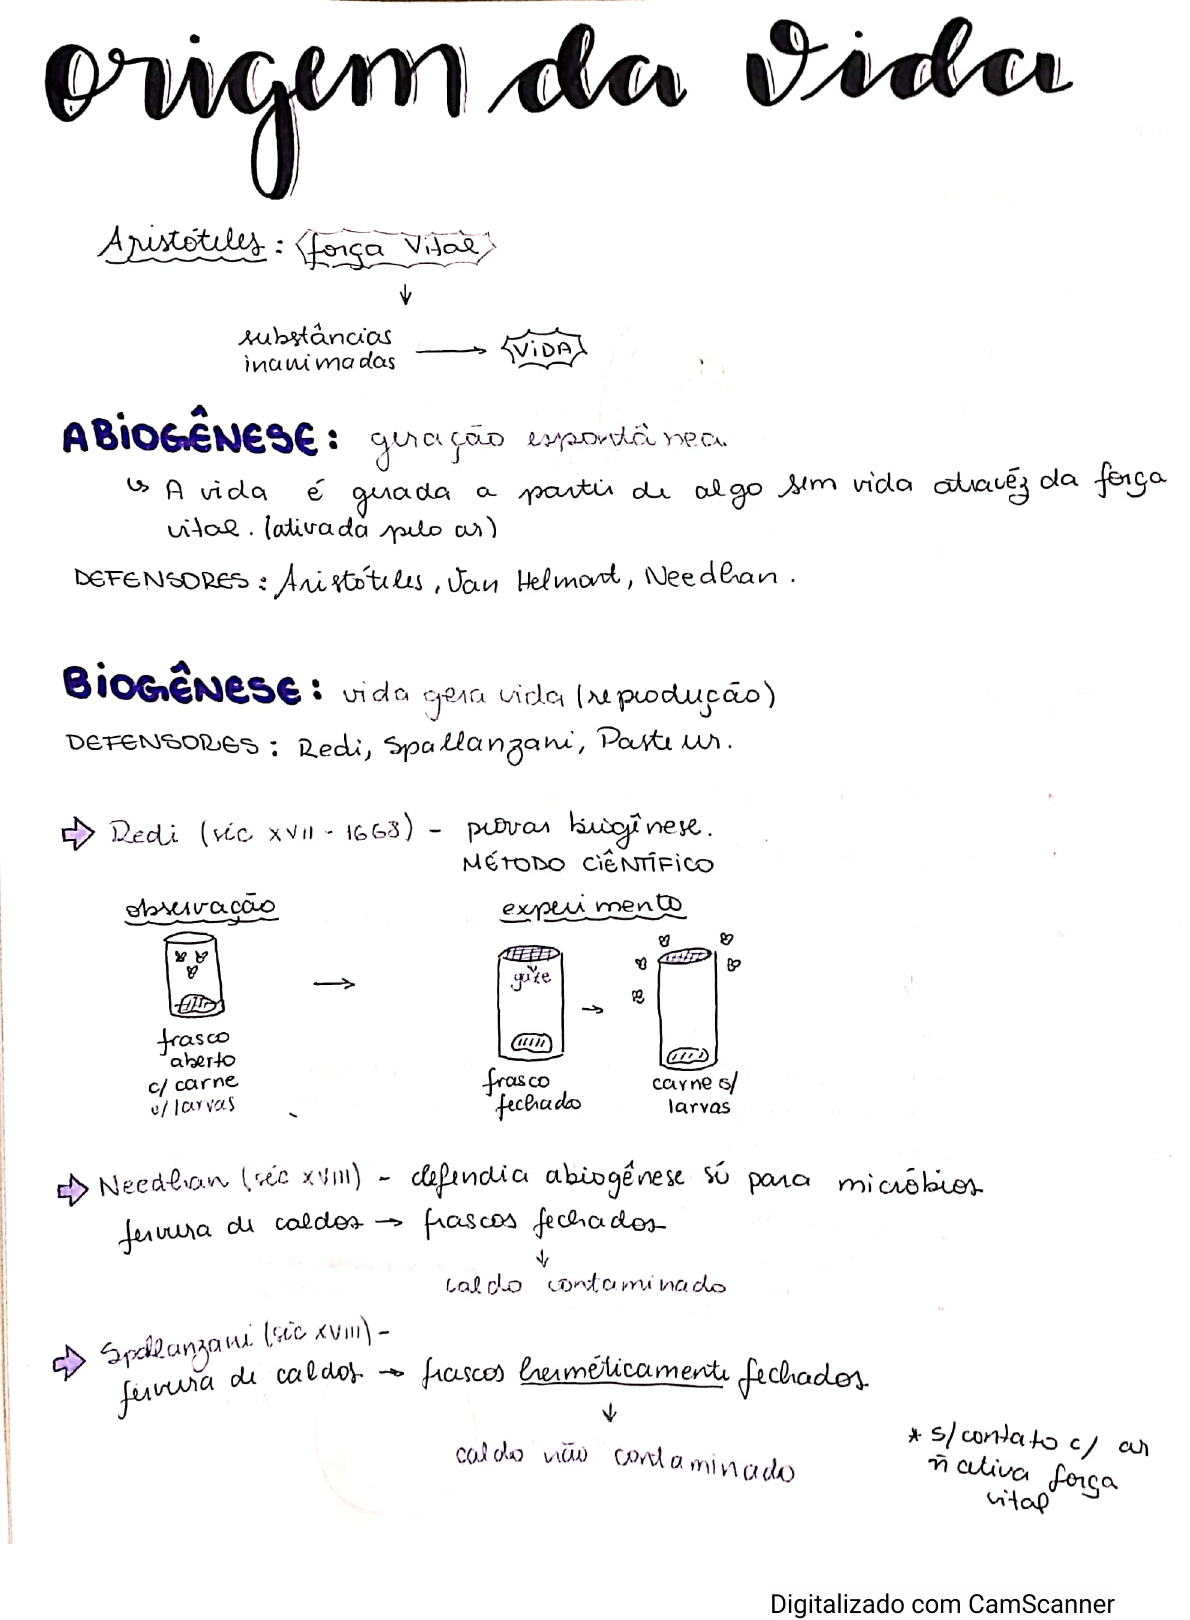 origem da vida
Aristóteles: força vital
↓
substâncias
inanimadas → VIDA
ABIOGÊNESE: geração espontânea
↳ A vida é gerada a partir de algo sem vida atravéz da força
vital. (ativada pelo ar)
DEFENSORES: Aristóteles, Van Helmont, Needhan.
BIOGÊNESE: vida gera vida (reprodução)
DEFENSORES: Redi, Spallanzani, Pasteur.
⇒ Redi (séc XVII - 1668) - provar biogênese.
MÉTODO CIÊNTÍFICO
observação → experimento
gaze
frasco
aberto
c/ carne
c/ larvas
frasco
fechado
→
carne s/
larvas
⇒ Needhan (séc XVIII) - defendia abiogênese só para micróbios
fervura de caldos → frascos fechados
↓
caldo contaminado
⇒ Spallanzani (séc XVIII) -
fervura de caldos → frascos herméticamente fechados
↓
caldo não contaminado
* s/ contato c/ ar
ñ ativa força
vital
Digitalizado com CamScanner